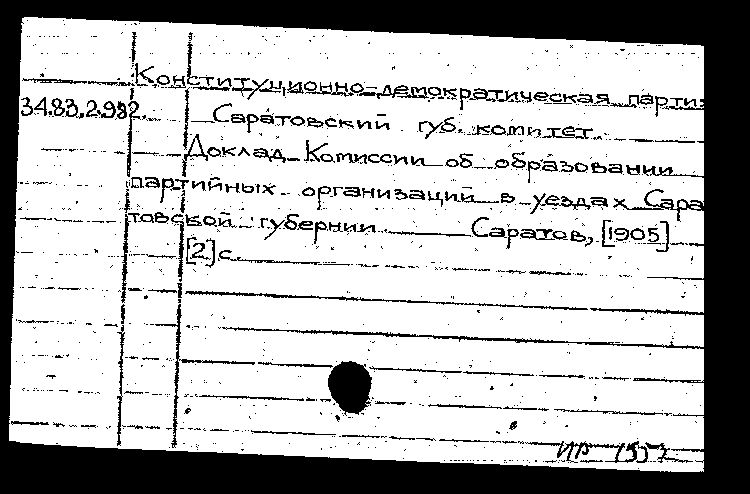 Конституционно-демократическая парти
34.83.2.992. Саратовский губ. комитет.
Доклад Комиссии об образовании
партийных организаций в уездах Сара
товской губернии Саратов, [1905]
[2] с.
ИР